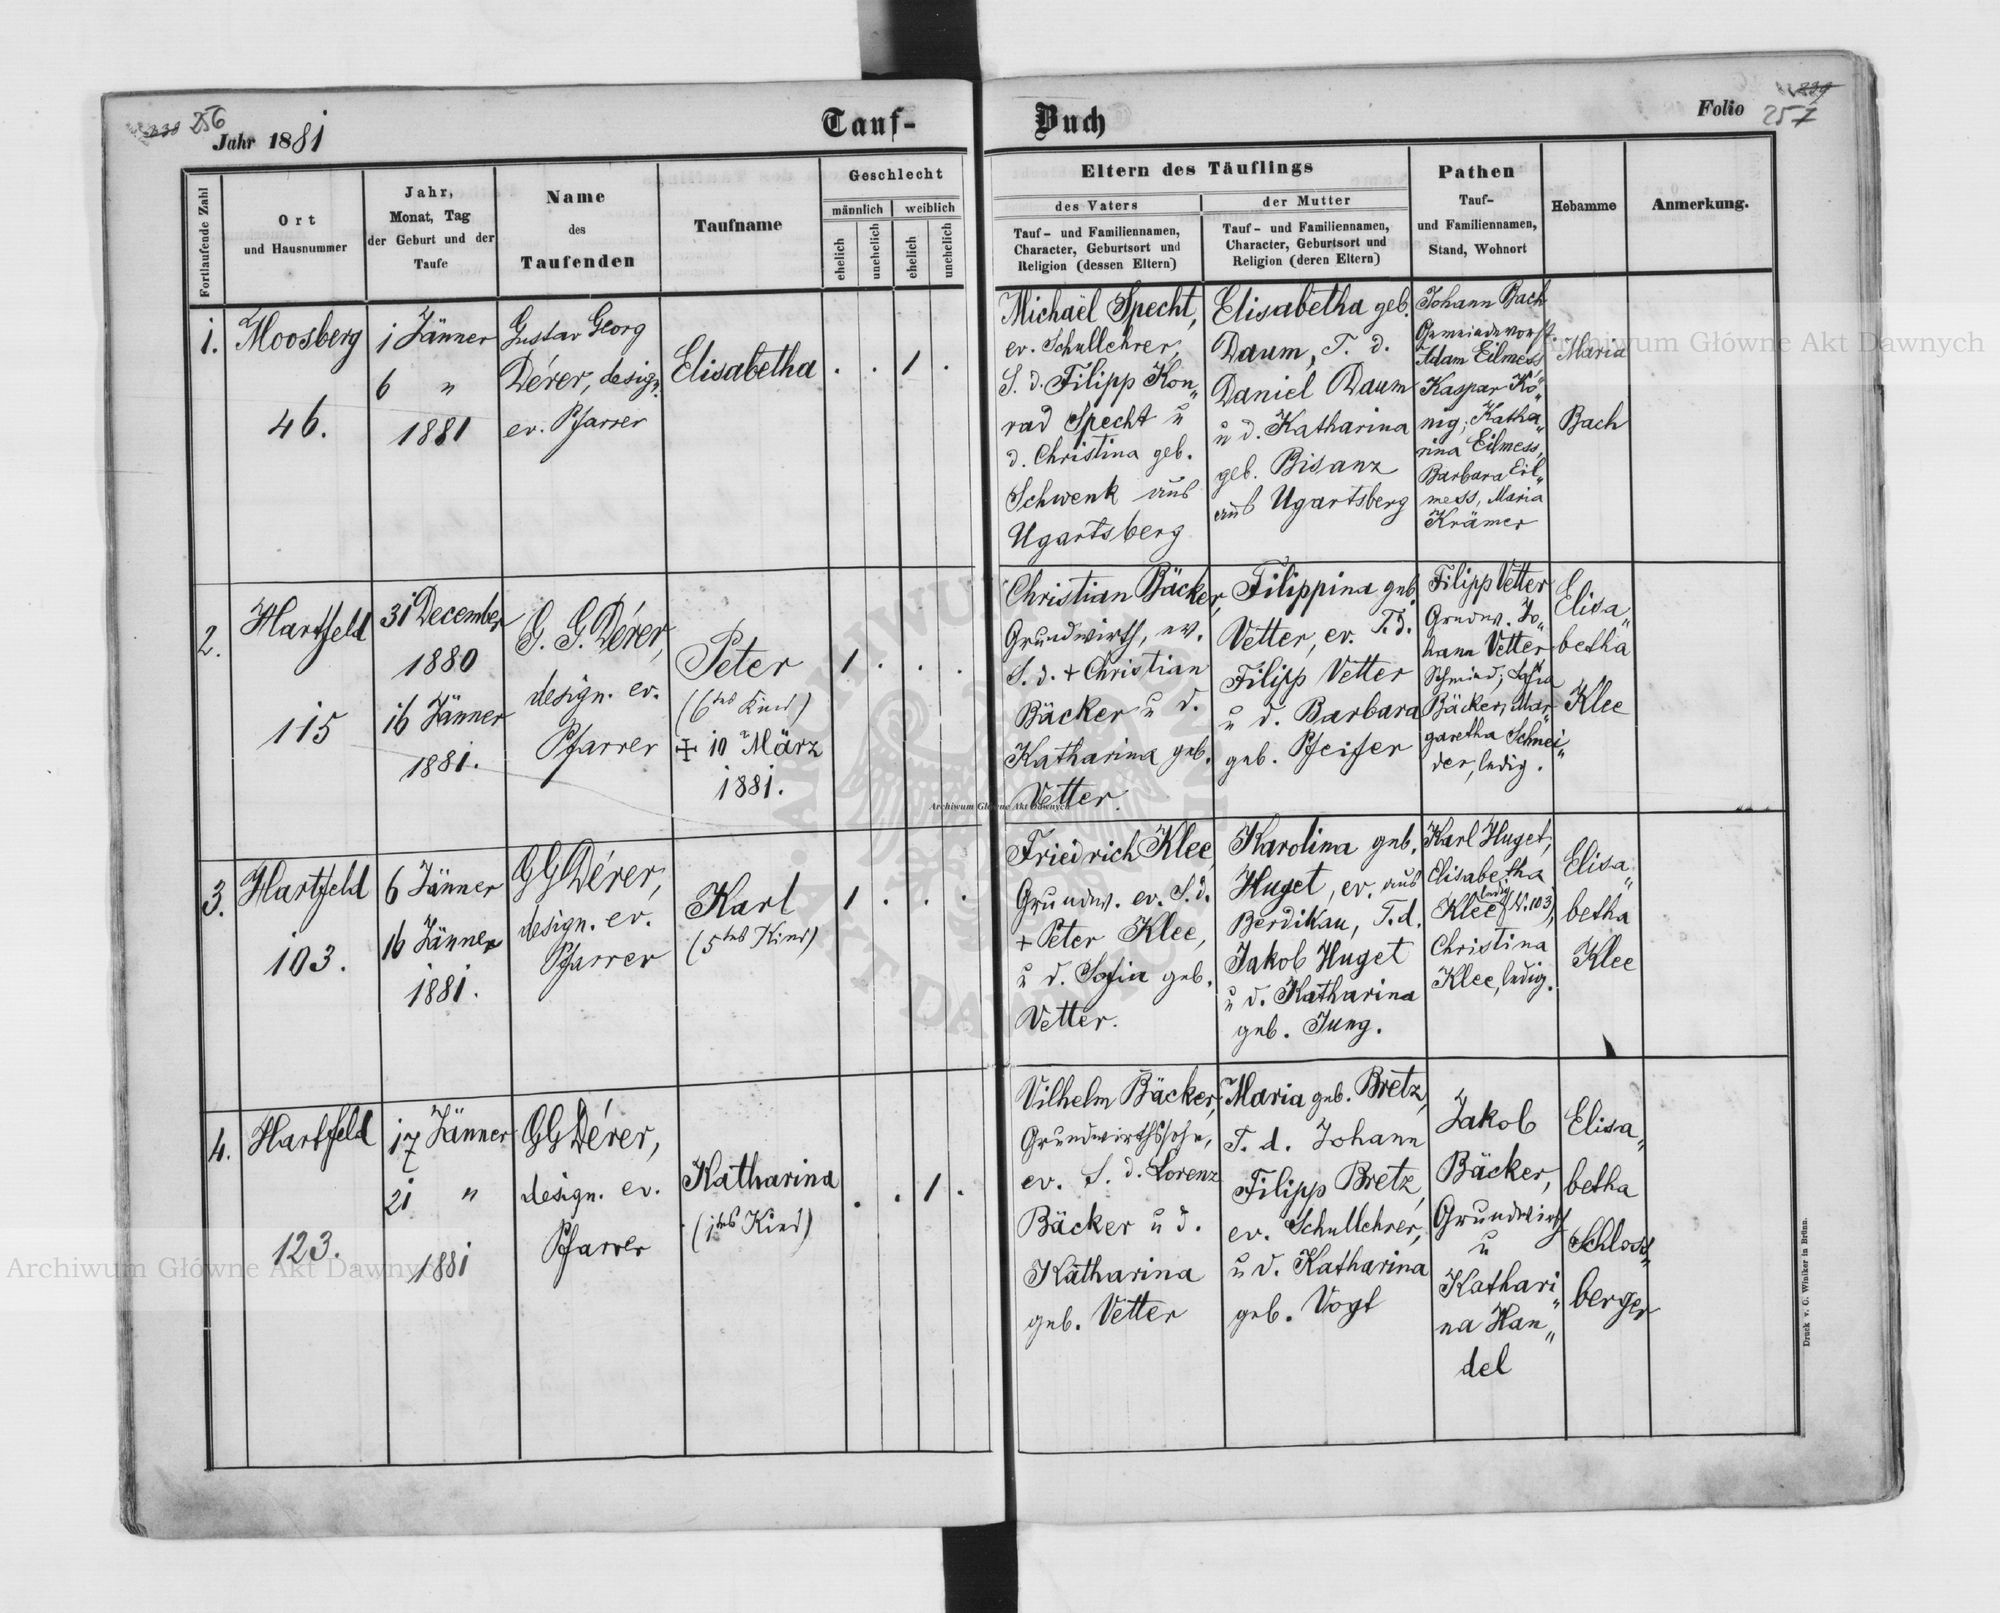 256
Jahr 1881
Tauf-
Buch
Folio
257
Fortlaufende Zahl
Ort
und Hausnummer
Jahr,
Monat, Tag
der Geburt und der
Taufe
Name
des
Taufenden
Taufname
Geschlecht
männlich
weiblich
ehelich
unehelich
ehelich
unehelich
Eltern des Täuflings
des Vaters
Tauf- und Familiennamen,
Character, Geburtsort und
Religion (dessen Eltern)
der Mutter
Tauf- und Familiennamen,
Character, Geburtsort und
Religion (deren Eltern)
Pathen
Tauf-
und Familiennamen,
Stand, Wohnort
Hebamme
Anmerkung.
1.
Moosberg
46.
1 Jänner
6 "
1881
Gustav Georg
Dérer, design.
ev. Pfarrer
Elisabetha
. . 1 .
Michaël Specht,
ev. Schullehrer,
S. d. Filipp Kon„
rad Specht u
d. Christina geb.
Schwenk aus
Ugartsberg
Elisabetha geb.
Daum, T. d.
Daniel Daum
u d. Katharina
geb. Bisanz
aus Ugartsberg
Johann Bach
Gemeindevorst.
Adam Eilmess,
Kaspar Kö„
nig; Katha„
rina Eilmess,
Barbara Eil„
mess, Maria
Krämer
Maria
Bach
2.
Hartfeld
115
31 December
1880
16 Jänner
1881.
G. G. Dérer,
design. ev.
Pfarrer
Peter
(6tes Kind)
✠ 10 März
1881.
1 . . .
Christian Bäcker,
Grundwirth, ev.
S. d. + Christian
Bäcker u d.
Katharina geb.
Vetter.
Filippina geb
Vetter, ev. T. d.
Filipp Vetter
u d. Barbara
geb. Pfeifer
Filipp Vetter
Grundw. Jo„
hann Vetter
Schmied; Sofia
Bäcker, Mar„
garetha Schnei„
der, ledig.
Elisa„
betha
Klee
3.
Hartfeld
103.
6 Jänner
16 Jänner
1881.
GG Dérer,
design. ev.
Pfarrer
Karl
(5tes Kind)
1 . . .
Friedrich Klee,
Grundw. ev. S. d.
+ Peter Klee,
u d. Sofia geb.
Vetter.
Karolina geb.
Huget, ev. aus
Berdikau, T. d.
Jakob Huget
u d. Katharina
geb. Jung.
Karl Huget,
Elisabetha
Klee ledig (N. 103),
Christina
Klee, ledig.
Elisa„
betha
Klee
4.
Hartfeld
123.
17 Jänner
21 "
1881
GG Dérer,
design. ev.
Pfarrer
Katharina
(1tes Kind)
. . 1 .
Vilhelm Bäcker,
Grundwirthssohn,
ev. S. d. Lorenz
Bäcker u d.
Katharina
geb. Vetter
Maria geb. Bretz,
T. d. Johann
Filipp Bretz,
ev. Schullehrer,
u d. Katharina
geb. Vogt
Jakob
Bäcker,
Grundwirth
u
Kathari„
na Han„
del
Elisa„
betha
Schloss„
berger
Druck v. C. Winiker in Brünn.
Archiwum Główne Akt Dawnych
Archiwum Główne Akt Dawnych
Archiwum Główne Akt Dawnych